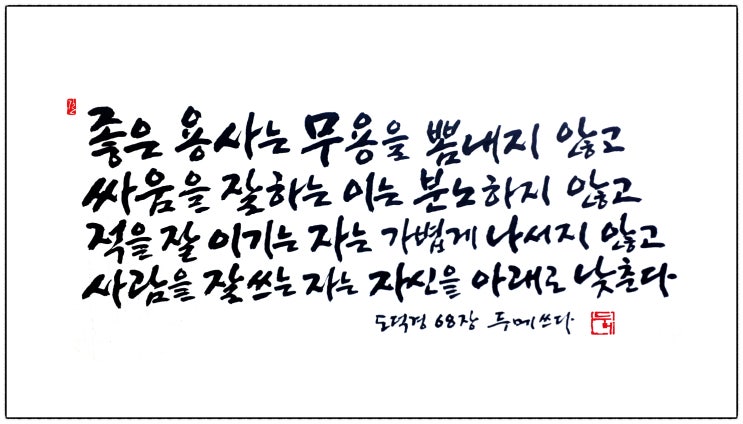 좋은 용사는 무용을 뽐내지 않고
싸움을 잘하는 이는 분노하지 않고
적을 잘 이기는 자는 가볍게 나서지 않고
사람을 잘 쓰는 자는 자신을 아래로 낮춘다
도덕경 68장 두메쓰다
두메